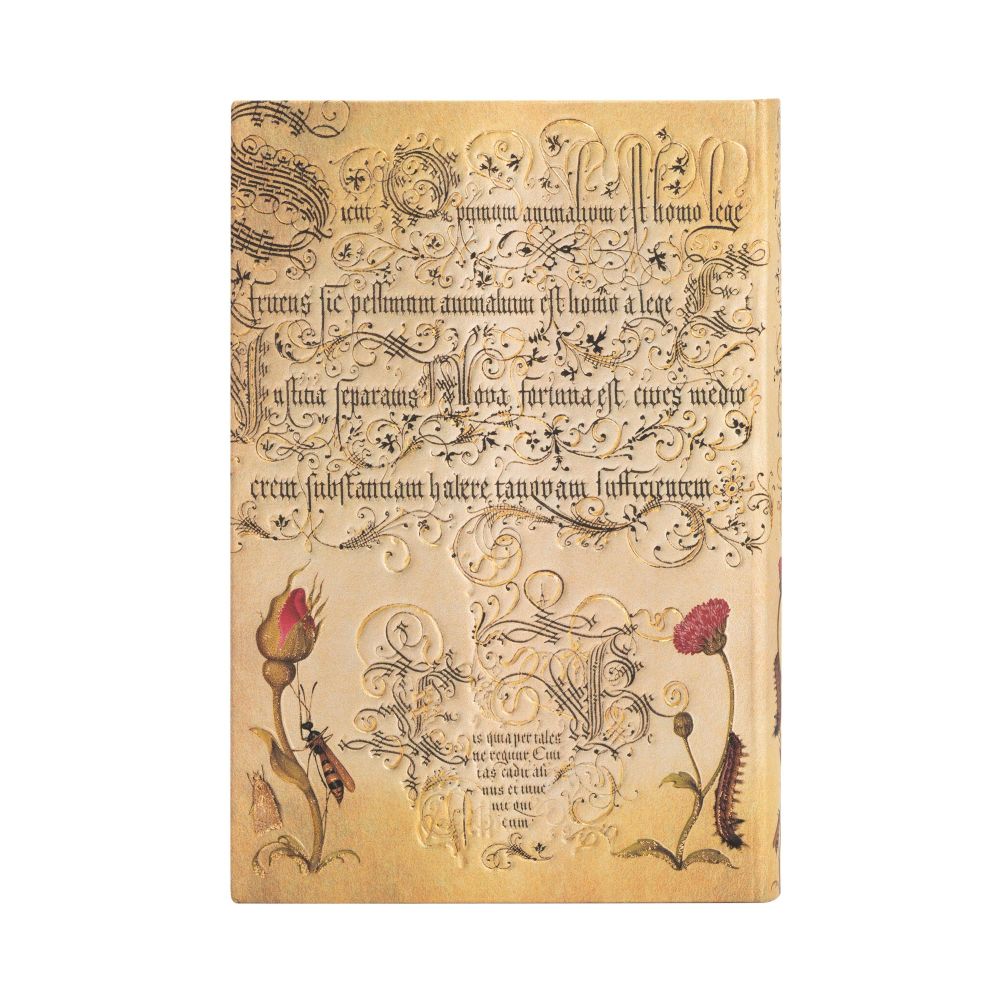 Sicut Optimum animalium est homo lege
fruens sic pessimum animalium est homo a lege Et
Iusticia separatus Nova fortuna est cives medio
crem substantiam habere tanquam sufficientem
is quia per tales Be
ne regitur Civi
tas cadit asi
nus et inve
nit qui
eum